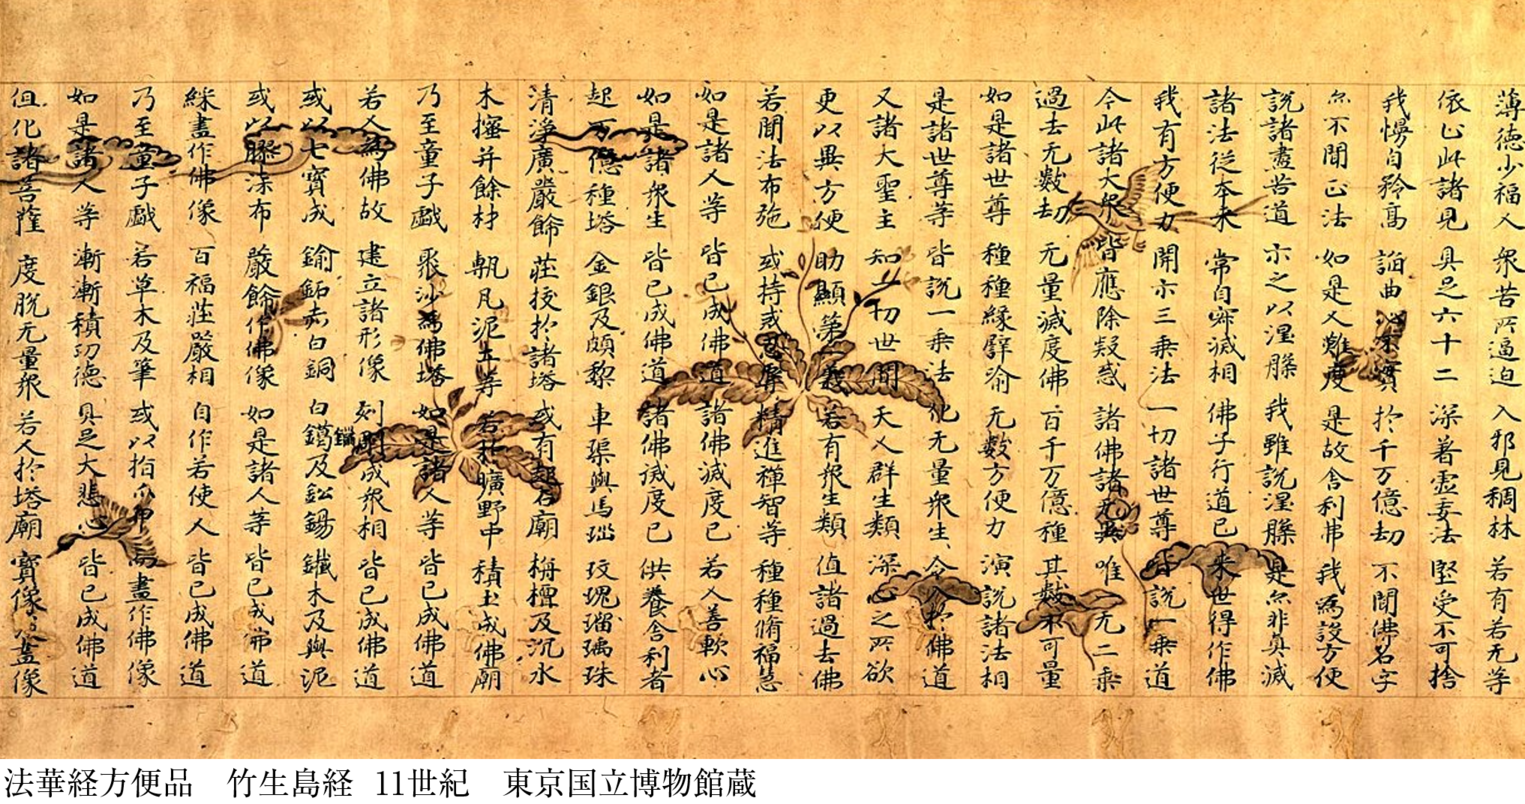 薄德少福人 衆苦所逼迫 入邪見稠林 若有若无等
依止此諸見 具足六十二 深著虚妄法 堅受不可捨
我慢自矜高 諂曲心不實 於千万億劫 不聞佛名字
亦不聞正法 如是人難度 是故舍利弗 我為設方便
說諸盡苦道 示之以涅槃 我雖說涅槃 是亦非真滅
諸法従本来 常自寂滅相 佛子行道已 来世得作佛
我有方便力 開示三乗法 一切諸世尊 皆說一乗道
今此諸大衆 皆應除疑惑 諸佛語无異 唯一无二乗
過去无數劫 无量滅度佛 百千万億種 其數不可量
如是諸世尊 種種縁譬喻 无數方便力 演說諸法相
是諸世尊等 皆說一乗法 化无量衆生 令入於佛道
又諸大聖主 知一切世間 天人群生類 深心之所欲
更以異方便 助顯第一義 若有衆生類 值諸過去佛
若聞法布施 或持戒忍辱 精進禪智等 種種脩福慧
如是諸人等 皆已成佛道 諸佛滅度已 若人善軟心
如是諸衆生 皆已成佛道 諸佛滅度已 供養舍利者
起万億種塔 金銀及頗黎 車璖與馬瑙 玫瑰瑠璃珠
清淨廣嚴飾 莊挍於諸塔 或有起石廟 栴檀及沉水
木櫁并餘材 甎瓦泥土等 若於曠野中 積土成佛廟
乃至童子戯 聚沙為佛塔 如是諸人等 皆已成佛道
若人為佛故 建立諸形像 刻彫成衆相 皆已成佛道
或以七寶成 鍮鉐赤白銅 白鑞及鈆錫 鐵木及與泥
或以膠漆布 嚴飾作佛像 如是諸人等 皆已成佛道
綵畫作佛像 百福莊嚴相 自作若使人 皆已成佛道
乃至童子戯 若草木及筆 或以指爪甲 而畫作佛像
如是諸人等 漸漸積功德 具足大悲心 皆已成佛道
但化諸菩薩 度脫无量衆 若人於塔廟 寶像及畫像
法華経方便品　竹生島経　11世紀　東京国立博物館蔵